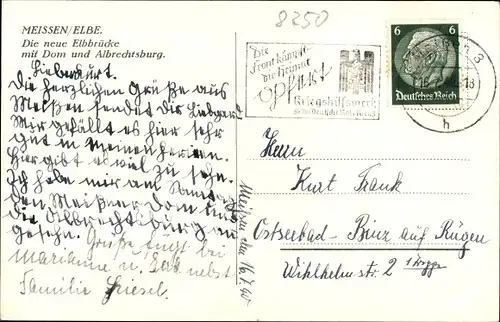 8250
MEISSEN/ELBE.
Die neue Elbbrücke
mit Dom und Albrechtsburg.
Lieber Kurt.
Die herzlichen Grüße aus
Meißen sendet dir Liebgard
Mir gefällt es hier sehr
gut in meinen Ferien.
Hier gibt es viel zu sehn.
Ich habe mir am
den Meißner Dom und
die Albrechtsburg an
gesehn. Grüße fügt bei
Marianne u. nebst
Familie
Meissen, den 16.7.40
Die
Front kämpft
die Heimat
opfert
Kriegshilfswerk
für das Deutsche Rote Kreuz
6 6
Deutsches Reich
3
h
Herrn
Kurt Frank
Ostseebad - Binz auf Rügen
Wihlhelmstr. 2 1 Treppe